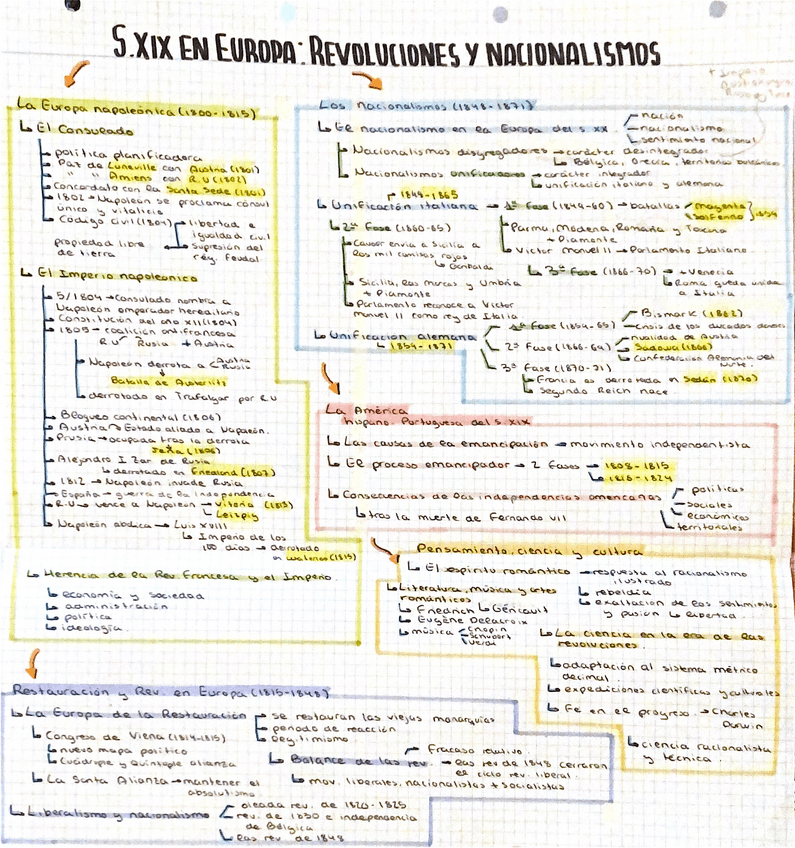 S.XIX EN EUROPA: REVOLUCIONES Y NACIONALISMOS
+ Imperio
La Europa napoleónica (1800-1815)
El Consulado
política planificadora
Paz de Luneville con Austria (1801)
" " Amiens con R.U (1802)
Concordato con la Santa Sede (1801)
1802 → Napoleón se proclama cónsul
único y vitalicio
Código civil (1804)
libertad e
igualdad civil
supresión del
rég. feudal
propiedad libre
de tierra
El Imperio napoleónico
5/1804 → consulado nombra a
Napoleón emperador hereditario
Constitución del año XII (1804)
1805 → coalición antifrancesa
R.U Rusia + Austria
Napoleón derrota a
Austria
Rusia
Batalla de Austerlitz
derrotado en Trafalgar por RU
Bloqueo continental (1806)
Austria → Estado aliado a Napoleón.
Prusia → ocupada tras la derrota
Jena (1806)
Alejandro I Zar de Rusia
derrotado en Friedland (1807)
1812 → Napoleón invade Rusia
España → guerra de la independencia
R.U → vence a Napoleón → Vitoria (1813)
Leizpig
Napoleón abdica → Luis XVIII
Imperio de los
100 días → derrotado
en Waterloo (1815)
Herencia de la Rev. Francesa y el Imperio.
economía y sociedad
administración
política
ideología.
Los nacionalismos (1848-1871)
El nacionalismo en la Europa del s. XX
nación
nacionalismo
sentimiento nacional
Nacionalismos disgregadores → carácter desintegrador
Bélgica, Grecia, territorios balcánicos
Nacionalismos unificadores → carácter integrador
unificación italiana y alemana
Unificación italiana → 1ª Fase (1849-60) → batallas
Magenta
Solferino
1859
Parma, Modena, Romaña y Toscana
+ Piamonte
Victor Manuel II → Parlamento Italiano.
2ª Fase (1860-65)
Cavour envía a Sicilia a
los mil camisas rojas
Garibaldi
Sicilia, las marcas y Umbría
+ Piamonte
Parlamento reconoce a Victor
Manuel II como rey de Italia.
3ª Fase (1866-70) → + Venecia
Roma queda unida
a Italia
Unificación alemana
1ª Fase (1854-65)
Bismark (1862)
crisis de los ducados daneses
2ª Fase (1866-69)
rivalidad de Austria
Sadowa (1866)
Confederación Alemana del
Norte.
3ª Fase (1870-71)
Francia es derrotada en Sedán (1870)
Segundo Reich nace.
La América
hispano. Portuguesa del s. XIX
Las causas de la emancipación → movimiento independentista
El proceso emancipador → 2 Fases → 1808-1815
1816-1824
Consecuencias de las independencias americanas
políticas
sociales
económicas
territoriales
tras la muerte de Fernando VII
Pensamiento, ciencia y cultura
El espíritu romántico → respuesta al racionalismo
ilustrado
rebeldía
exaltación de los sentimientos
y pasión → libertad.
Literatura, música y artes
románticos
Friedrich Géricault
Eugène Delacroix
música
Chopin
Schubert
Verdi
La ciencia en la era de las
revoluciones.
adaptación al sistema métrico
decimal.
expediciones científicas y culturales
Fe en el progreso. → Charles
Darwin
ciencia racionalista
y técnica.
Restauración y Rev. en Europa (1815-1848)
La Europa de la Restauración
se restauran las viejas monarquías
periodo de reacción
legitimismo
Congreso de Viena (1814-1815)
nuevo mapa político
Cuádruple y Quíntuple alianza
La Santa Alianza → mantener el
absolutismo
Balance de las rev.
Fracaso relativo.
las rev de 1848 cerraron
el ciclo rev. liberal.
mov. liberales, nacionalistas + socialistas
Liberalismo y nacionalismo
oleada rev. de 1820-1825
rev. de 1830 e independencia
de Bélgica
las rev de 1848